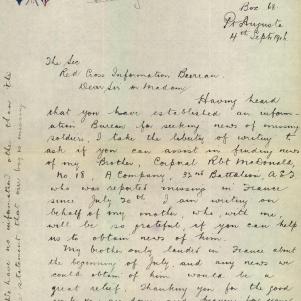 Box 68.
Pt Augusta
4th Sept 1916
The Sec
Red Cross Information Bureau.
Dear Sir or Madam,
Having heard
that you have established an inform-
ation Bureau for seeking news of missing
soldiers, I take the liberty of writing to
ask if you can assist in finding news
of my Brother, Corporal Robt McDonald,
No 18, A Company, 32nd Battalion A I F
who was reported missing in France
since July 20th I am writing on
behalf of my mother, who, with me,
will be so grateful, if you can help
us to obtain news of him.
My brother only landed in France about
the beginning of July and any news we
could obtain of him would be a
great relief. Thanking you for the good
We have no information other than the
statement that he is missing